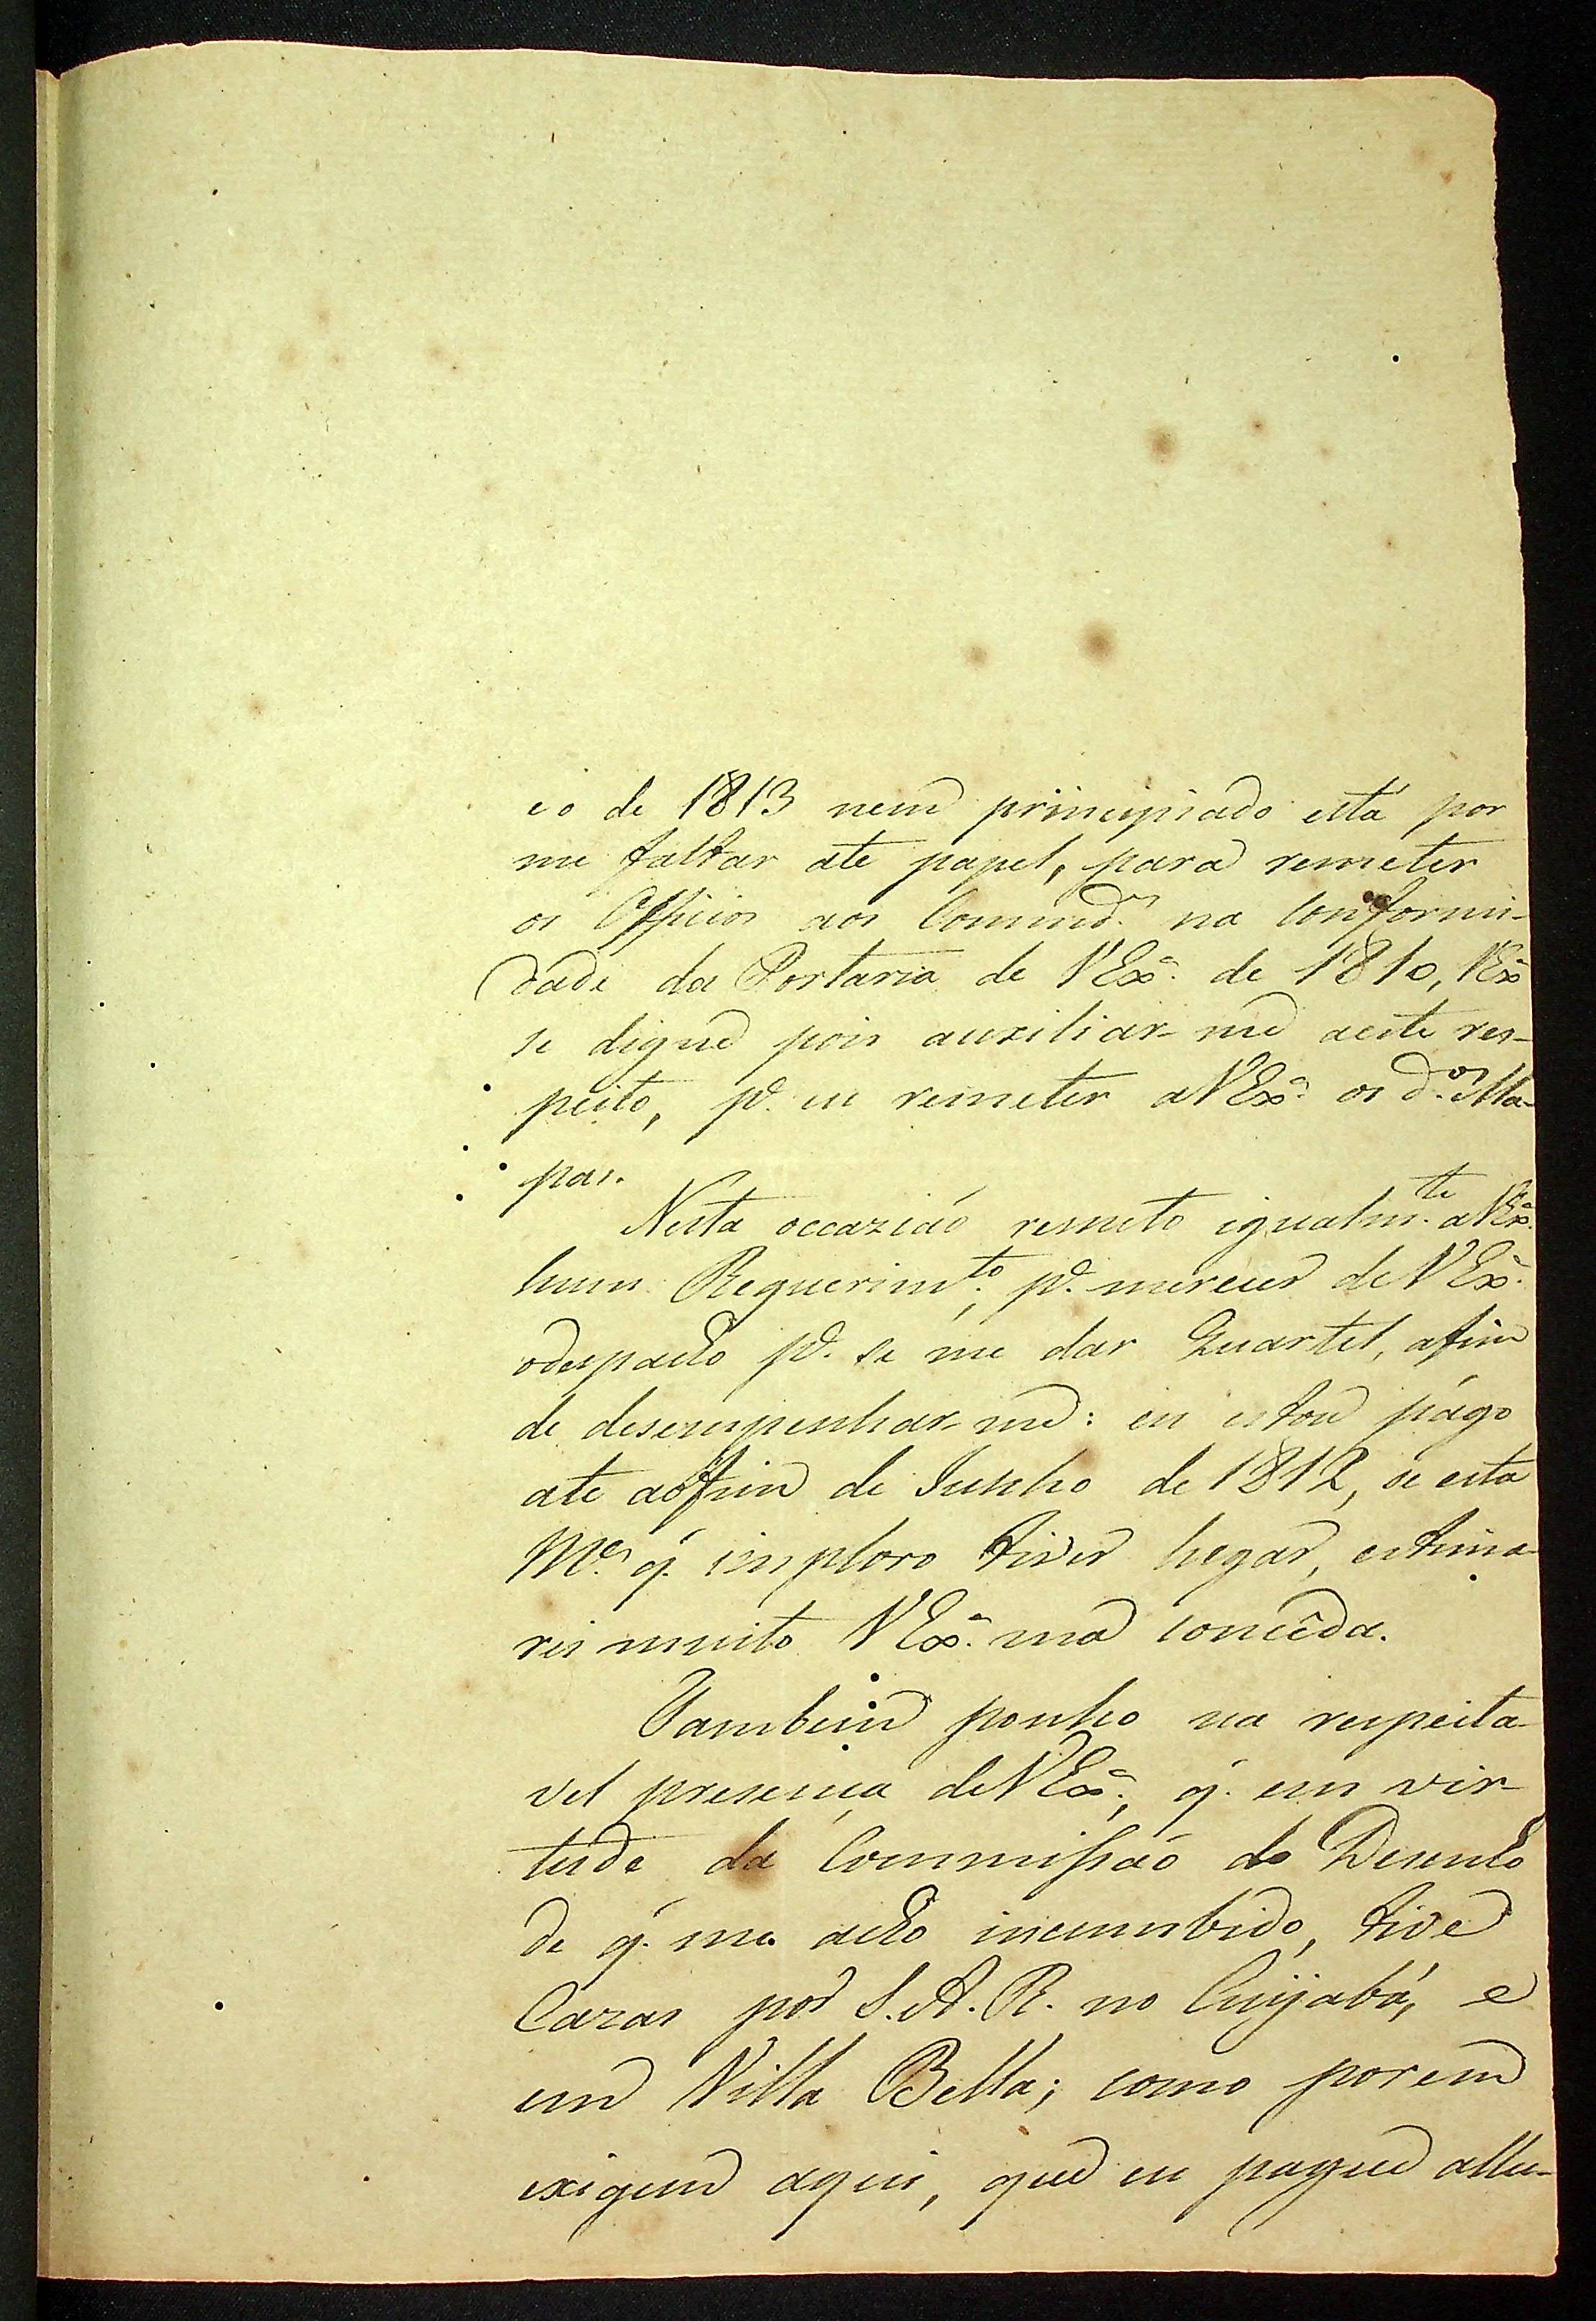 e o de 1813 nem principiado está por
me faltar ate papel, para remeter
os Officios aos Commd.es na Conformi-
dade da Portaria de VEx.ª de 1810, VEx.ª
se digne pois auxiliar-me aeste res-
peito, p.ª eu remeter aVEx.ª os d.os Ma-
pas.
Nesta occazião remeto igualm.te aVEx.ª
hum Requerim.to, p.ª merecer deVEx.ª
odespacho p.ª se me dar Quartel, afim
de desempenhar-me: eu estou págo
ate aofim de Junho de 1812, se esta
M.ce q. imploro tiver lugar, estima-
rei muito VEx.ª ma concêda.
Tambem ponho na respeita-
vel presença deVEx.ª, q. em vir-
tude da Commissão do Desenho
de q. me acho incumbido, tive
Cazas por S.A.R. no Cuijabá, e
em Villa Bella; como porem
exigem aqui, que eu pague allu-